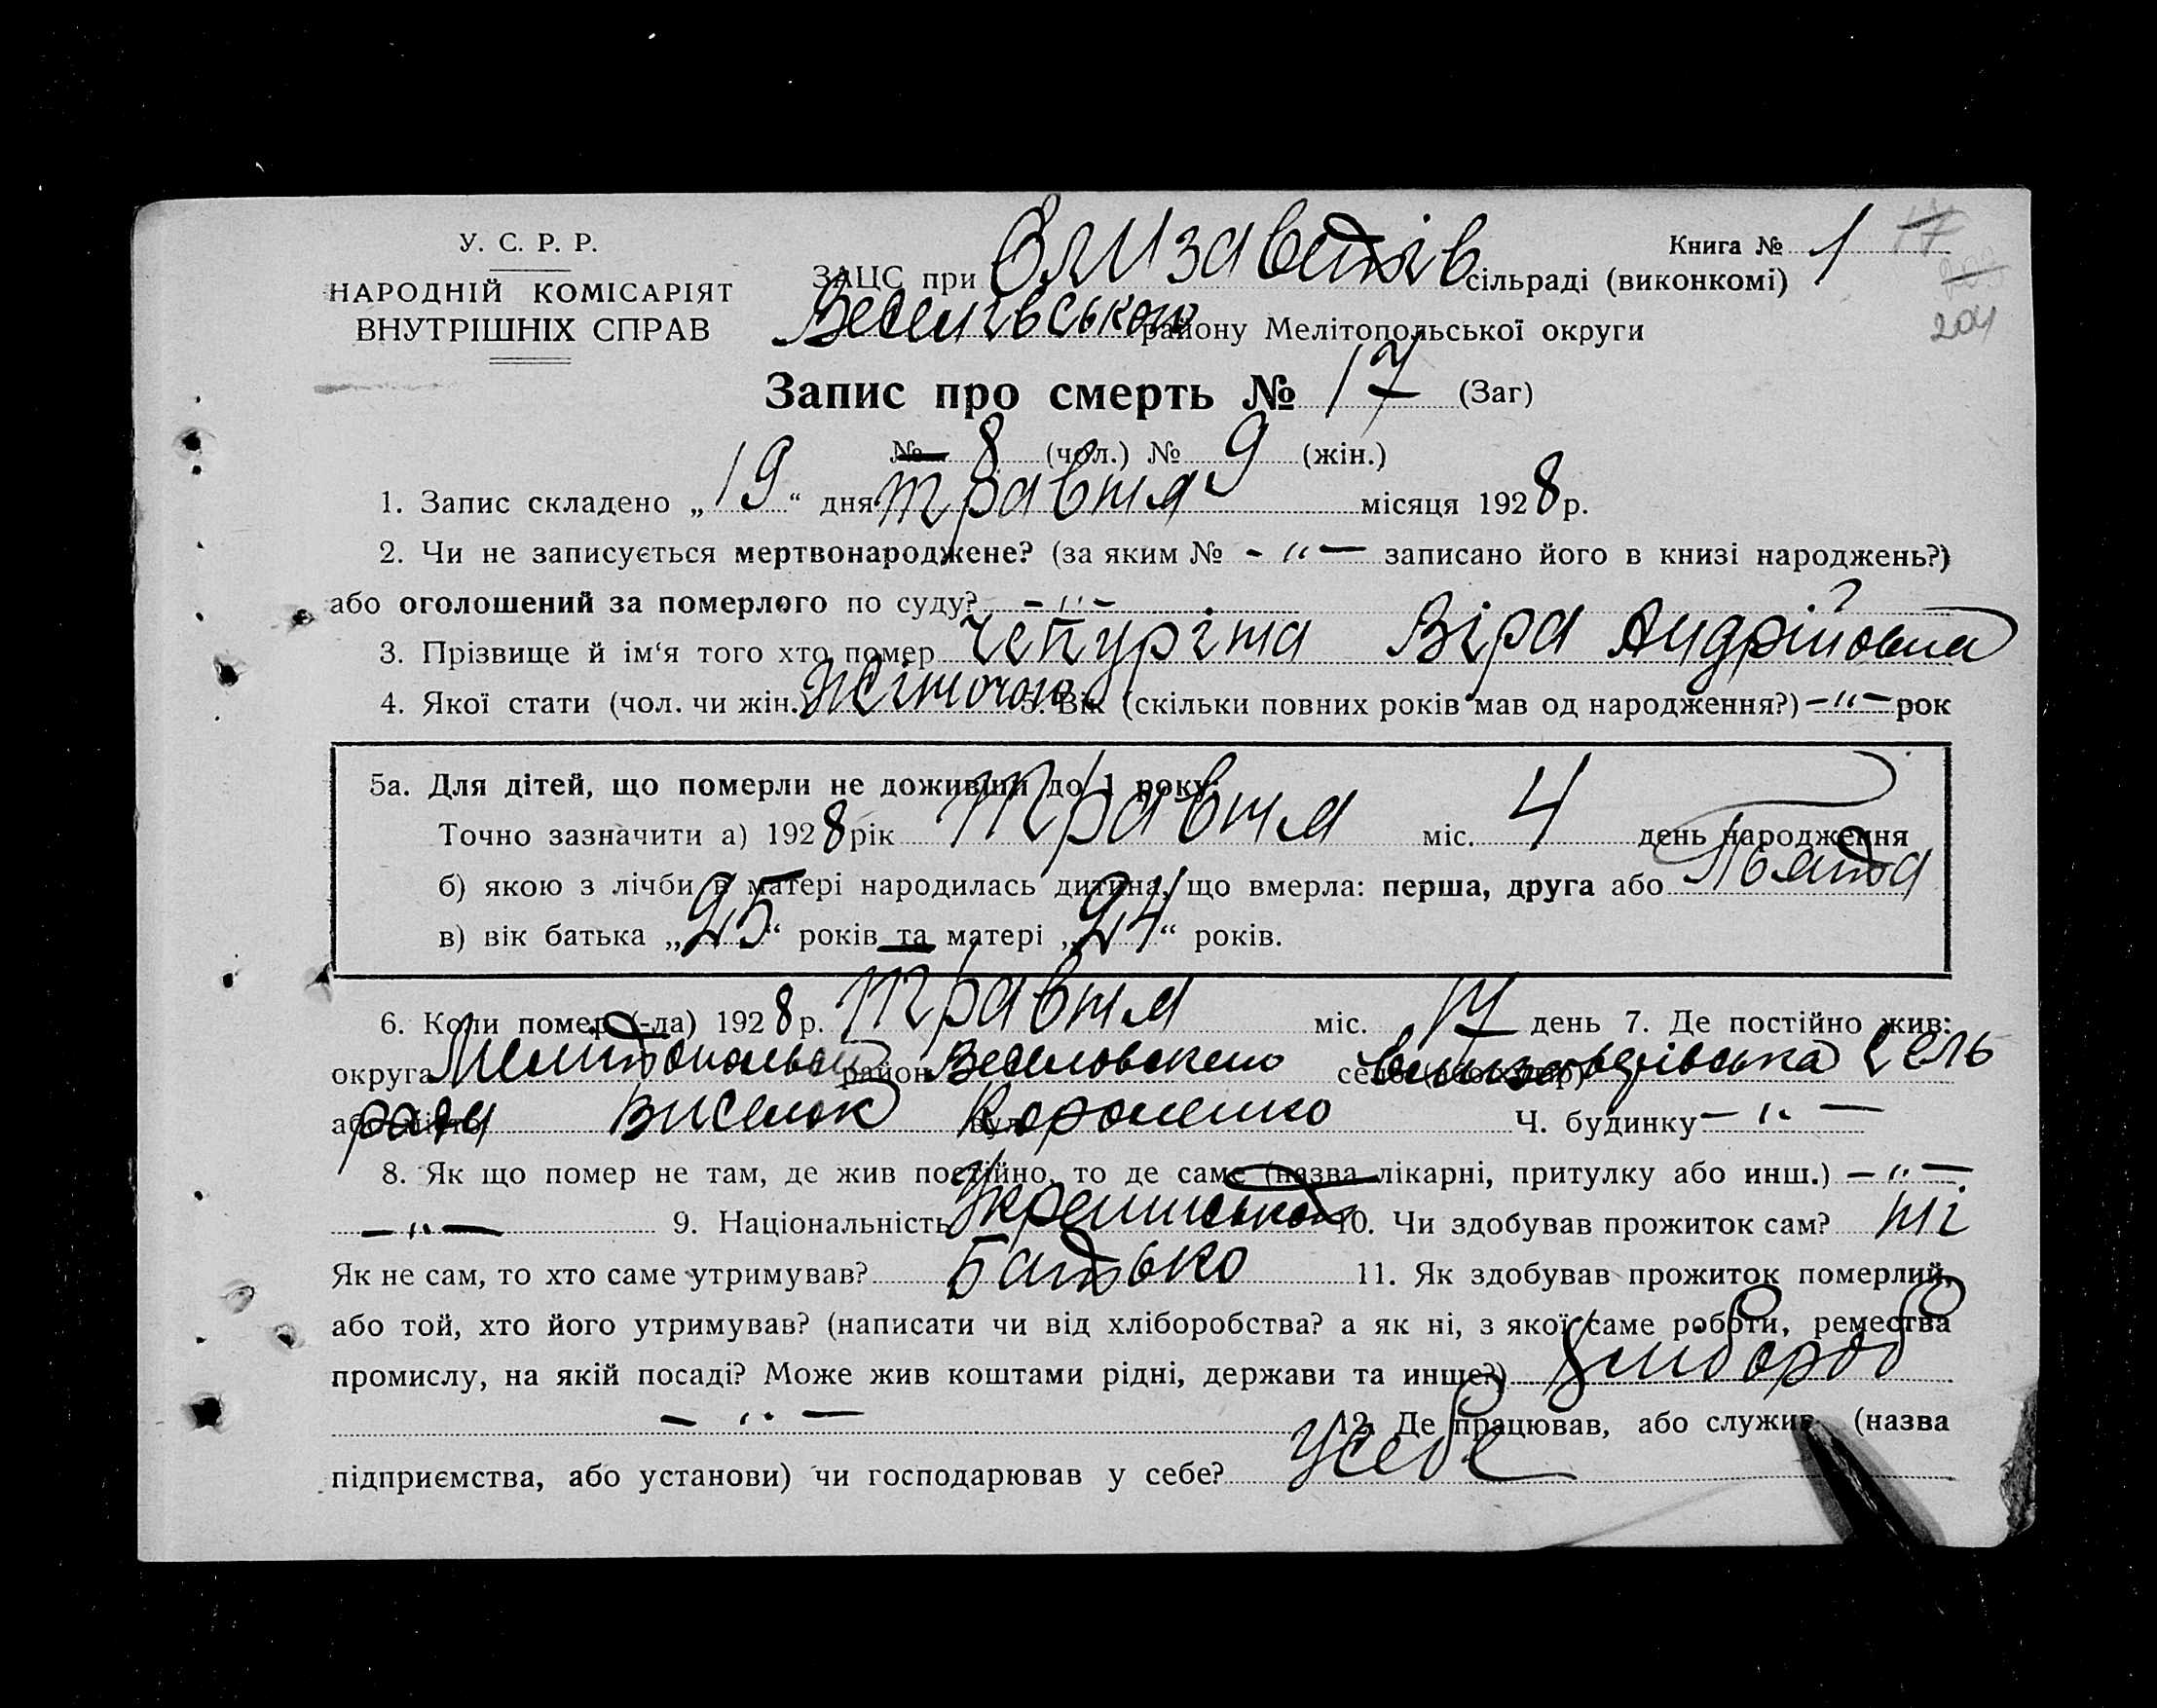 У. С. Р. Р.
НАРОДНІЙ КОМІСАРІЯТ
ВНУТРІШНІХ СПРАВ
Книга № 1
17
204
ЗАЦС при Єлизаветів сільраді (виконкомі)
Веселівського району Мелітопольської округи
Запис про смерть № 17 (Заг)
№ 8 (чол.) № 9 (жін.)
1. Запис складено „19“ дня травня місяця 1928 р.
2. Чи не записується мертвонароджене? (за яким № - " - записано його в книзі народжень?)
або оголошений за померлого по суду? - " -
3. Прізвище й ім'я того хто помер Чепуріна Віра Андрійовна
4. Якої стати (чол. чи жін.) Жіночою 5. Вік (скільки повних років мав од народження?) - " - рок
5а. Для дітей, що померли не доживши до 1 року:
Точно зазначити а) 1928 рік травня міс. 4 день народження
б) якою з лічби в матері народилась дитина, що вмерла: перша, друга або Пьята
в) вік батька „25“ років та матері „24“ років.
6. Коли помер (-ла) 1928 р. травня міс. 17 день 7. Де постійно жив:
округа район Веселовского село (або хутір) сель
ради Виселок Ч. будинку - " -
8. Як що помер не там, де жив постійно, то де саме (назва лікарні, притулку або инш.) - " -
- " - 9. Національність 10. Чи здобував прожиток сам? ні
Як не сам, то хто саме утримував? Батько 11. Як здобував прожиток померлий,
або той, хто його утримував? (написати чи від хліборобства? а як ні, з якої саме роботи, ремества
промислу, на якій посаді? Може жив коштами рідні, держави та инше?) Хлібороб
- " - 12. Де працював, або служив (назва
підприємства, або установи) чи господарював у себе? У себе